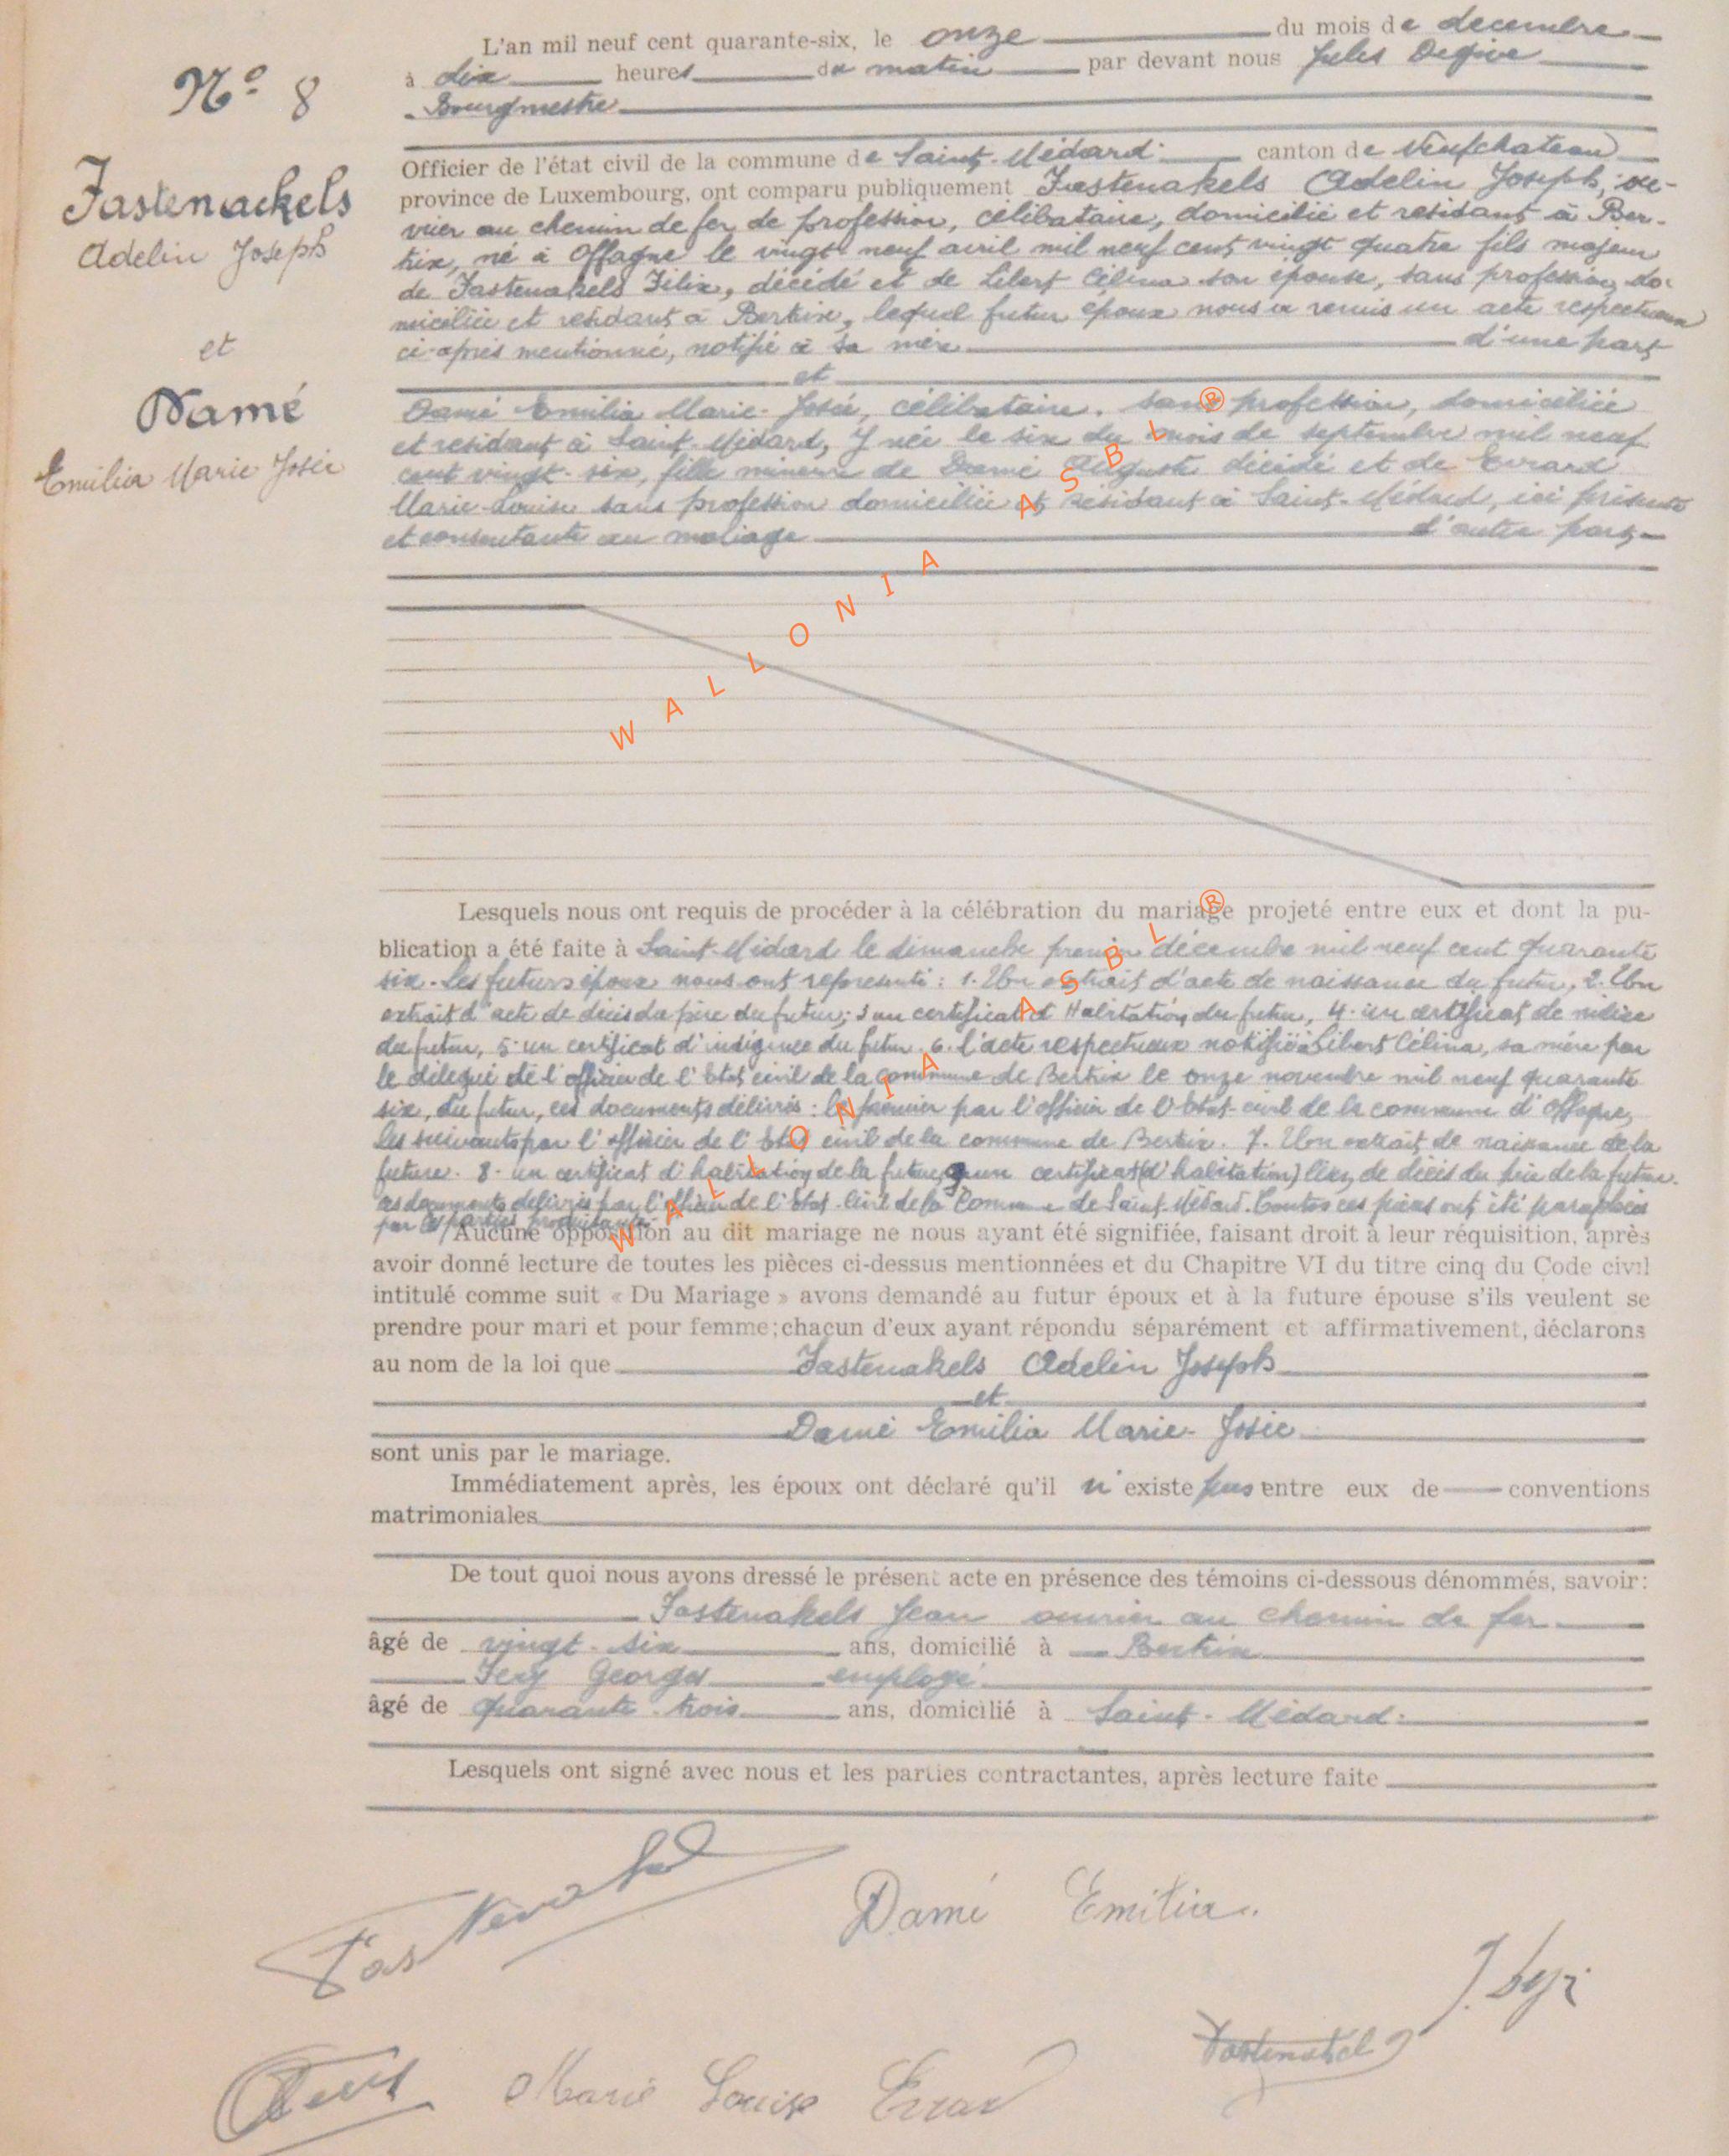 L'an mil neuf cent quarante-six, le onze du mois de decembre
à dix heures du matin par devant nous Jules
Bourgmestre
N° 8
Officier de l'état civil de la commune de Saint-Médard canton de Neufchateau
province de Luxembourg, ont comparu publiquement Fastenakels Adelin Joseph, ou-
vrier au chemin de fer de profession, célibataire, domicilié et residant à Ber-
trix, né à Offagne le vingt neuf avril mil neuf cent vingt quatre fils majeur
de Fastenakels Félix, décédé et de Libert Célina son épouse, sans profession, do-
miciliée et residant à Bertrix, lequel futur époux nous a remis un acte respectueux
ci-après mentionné, notifié à sa mère d'une part
et
Fastenackels
Adelin Joseph
et
Damé
Emilia Marie Josée
Damé Emilia Marie-Josée, célibataire, sans profession, domiciliée
et residant à Saint-Médard, y née le six du mois de septembre mil neuf
cent vingt-six, fille mineure de Damé Auguste décédé et de Evrard
Marie-Louise sans profession domiciliée et résidant à Saint-Médard, ici présente
et consentante au mariage d'autre part
WALLONIA ASBL ®
Lesquels nous ont requis de procéder à la célébration du mariage projeté entre eux et dont la pu-
blication a été faite à Saint-Médard le dimanche premier décembre mil neuf cent quarante
six. Les futurs époux nous ont representé : 1. Un extrait d'acte de naissance du futur, 2. Un
extrait d'acte de décès du père du futur; 3 un certificat d'Habitation du futur, 4. un certificat de milice
du futur, 5. un certificat d'indigence du futur. 6. l'acte respectueux notifié à Libert Célina, sa mère par
le délégué de l'officier de l'Etat civil de la commune de Bertrix le onze novembre mil neuf quarante
six, du futur, ces documents délivrés : le premier par l'officier de l'Etat-civil de la commune d'Offagne,
les suivants par l'officier de l'Etat civil de la commune de Bertrix. 7. Un extrait de naissance de la
future. 8. un certificat d'habitation de la future, 9 un certificat (d'habitation) de décès du père de la future.
ces documents délivrés par l'officier de l'Etat-Civil de la Commune de Saint Médard. Toutes ces pièces ont été paraphées
par les parties produisantes
Aucune opposition au dit mariage ne nous ayant été signifiée, faisant droit à leur réquisition, après
avoir donné lecture de toutes les pièces ci-dessus mentionnées et du Chapitre VI du titre cinq du Code civil
intitulé comme suit « Du Mariage » avons demandé au futur époux et à la future épouse s'ils veulent se
prendre pour mari et pour femme; chacun d'eux ayant répondu séparément et affirmativement, déclarons
au nom de la loi que Fastenakels Adelin Joseph
et
Damé Emilia Marie-Josée
sont unis par le mariage.
Immédiatement après, les époux ont déclaré qu'il n'existe pas entre eux de conventions
matrimoniales
WALLONIA ASBL ®
De tout quoi nous avons dressé le présent acte en présence des témoins ci-dessous dénommés, savoir:
Fastenakels Jean ouvrier au chemin de fer
âgé de vingt-six ans, domicilié à Bertrix
Georges employé
âgé de quarante-trois ans, domicilié à Saint-Médard.
Lesquels ont signé avec nous et les parties contractantes, après lecture faite
Damé Emilia
Marie Louise Evrard